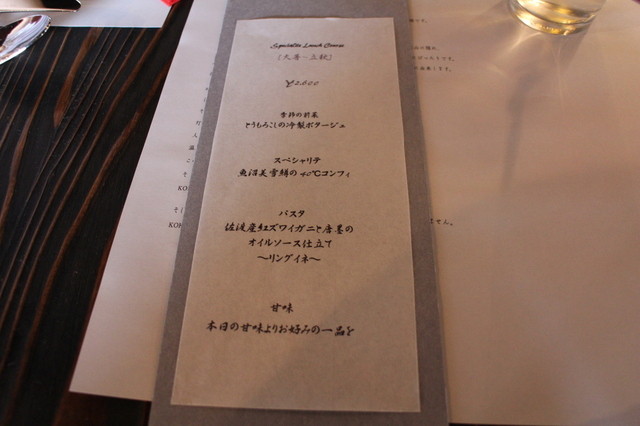 Specialite Lunch Course
〔大暑・立秋〕
¥2,600
季節の前菜
とうもろこしの冷製ポタージュ
スペシャリテ
魚沼美雪鱒の40℃コンフィ
パスタ
佐渡産紅ズワイガニと唐墨の
オイルソース仕立て
～リングイネ～
甘味
本日の甘味よりお好みの一品を
ません。